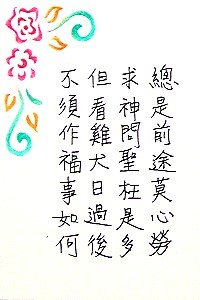 總是前途莫心勞
求神問聖枉是多
但看雞犬日過後
不須作福事如何